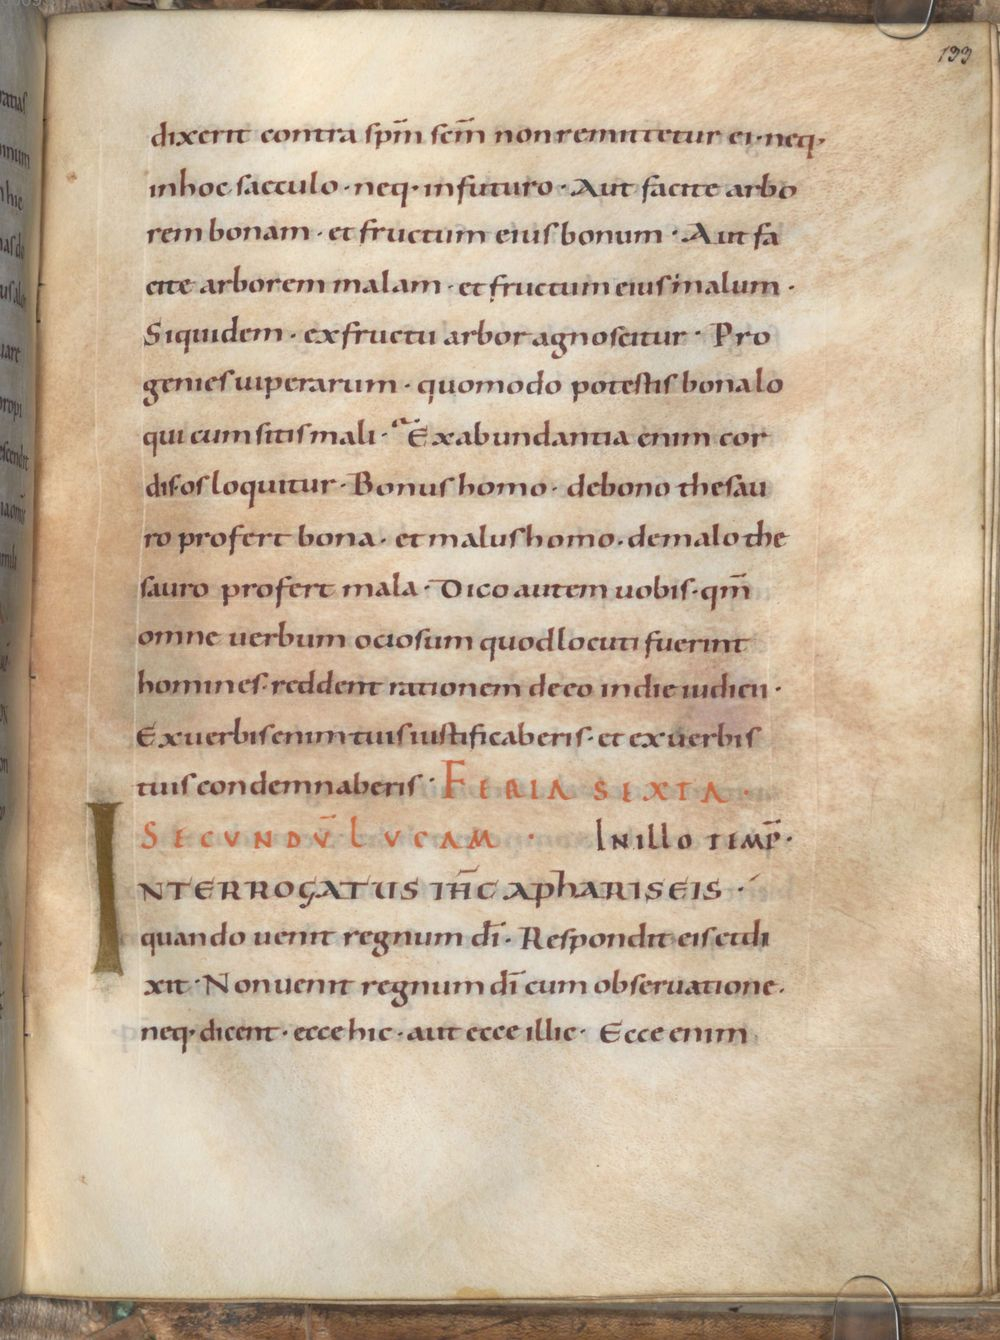 133
dixerit contra sp̄m sc̄m non remittetur ei · neq·
in hoc saeculo · neq· in futuro · Aut facite arbo
rem bonam · et fructum eius bonum · Aut fa
cite arborem malam · et fructum eius malum ·
Siquidem · ex fructu arbor agnoscitur · Pro
genies uiperarum · quomodo potestis bona lo
qui cum sitis mali · Ex abundantia enim cor
dis · os loquitur · Bonus homo · de bono thesau
ro profert bona · et malus homo · de malo the
sauro profert mala · Dico autem uobis · qm̄
omne uerbum ociosum quod locuti fuerint
homines · reddent rationem de eo in die iudicii ·
Ex uerbis enim tuis iustificaberis · et ex uerbis
tuis condemnaberis · FERIA SEXTA ·
SECUNDŪ LUCAM · IN ILLO TEMP̄ ·
INTERROGATUS IHC̄ A PHARISEIS ·
quando uenit regnum dī · Respondit eis et di
xit · Non uenit regnum dī cum obseruatione ·
neq· dicent · ecce hic · aut ecce illic · Ecce enim